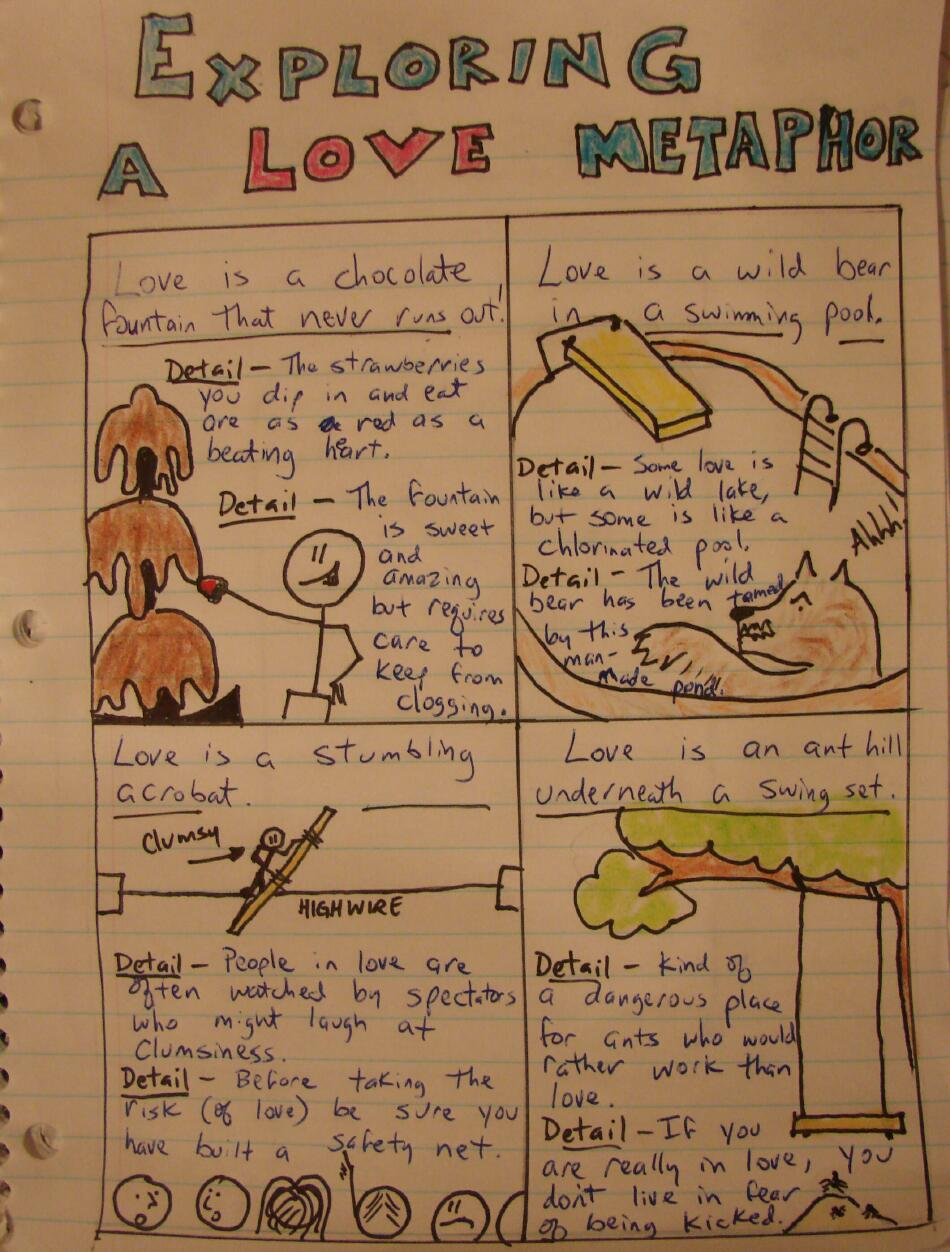 EXPLORING
A LOVE METAPHOR
Love is a chocolate
fountain that never runs out!
Detail - The strawberries
you dip in and eat
are as a red as a
beating heart.
Detail - The fountain
is sweet
and
amazing
but requires
care to
keep from
clogging.
Love is a wild bear
in a swimming pool.
Detail - Some love is
like a wild lake,
but some is like a
chlorinated pool.
Detail - The wild
bear has been tamed
by this
man-
made pond.
Ahhh!
Love is a stumbling
acrobat.
Clumsy
HIGHWIRE
Detail - People in love are
often watched by spectators
who might laugh at
clumsiness.
Detail - Before taking the
risk (of love) be sure you
have built a safety net.
Love is an ant hill
underneath a swing set.
Detail - Kind of
a dangerous place
for ants who would
rather work than
love.
Detail - If you
are really in love, you
don't live in fear
of being kicked.